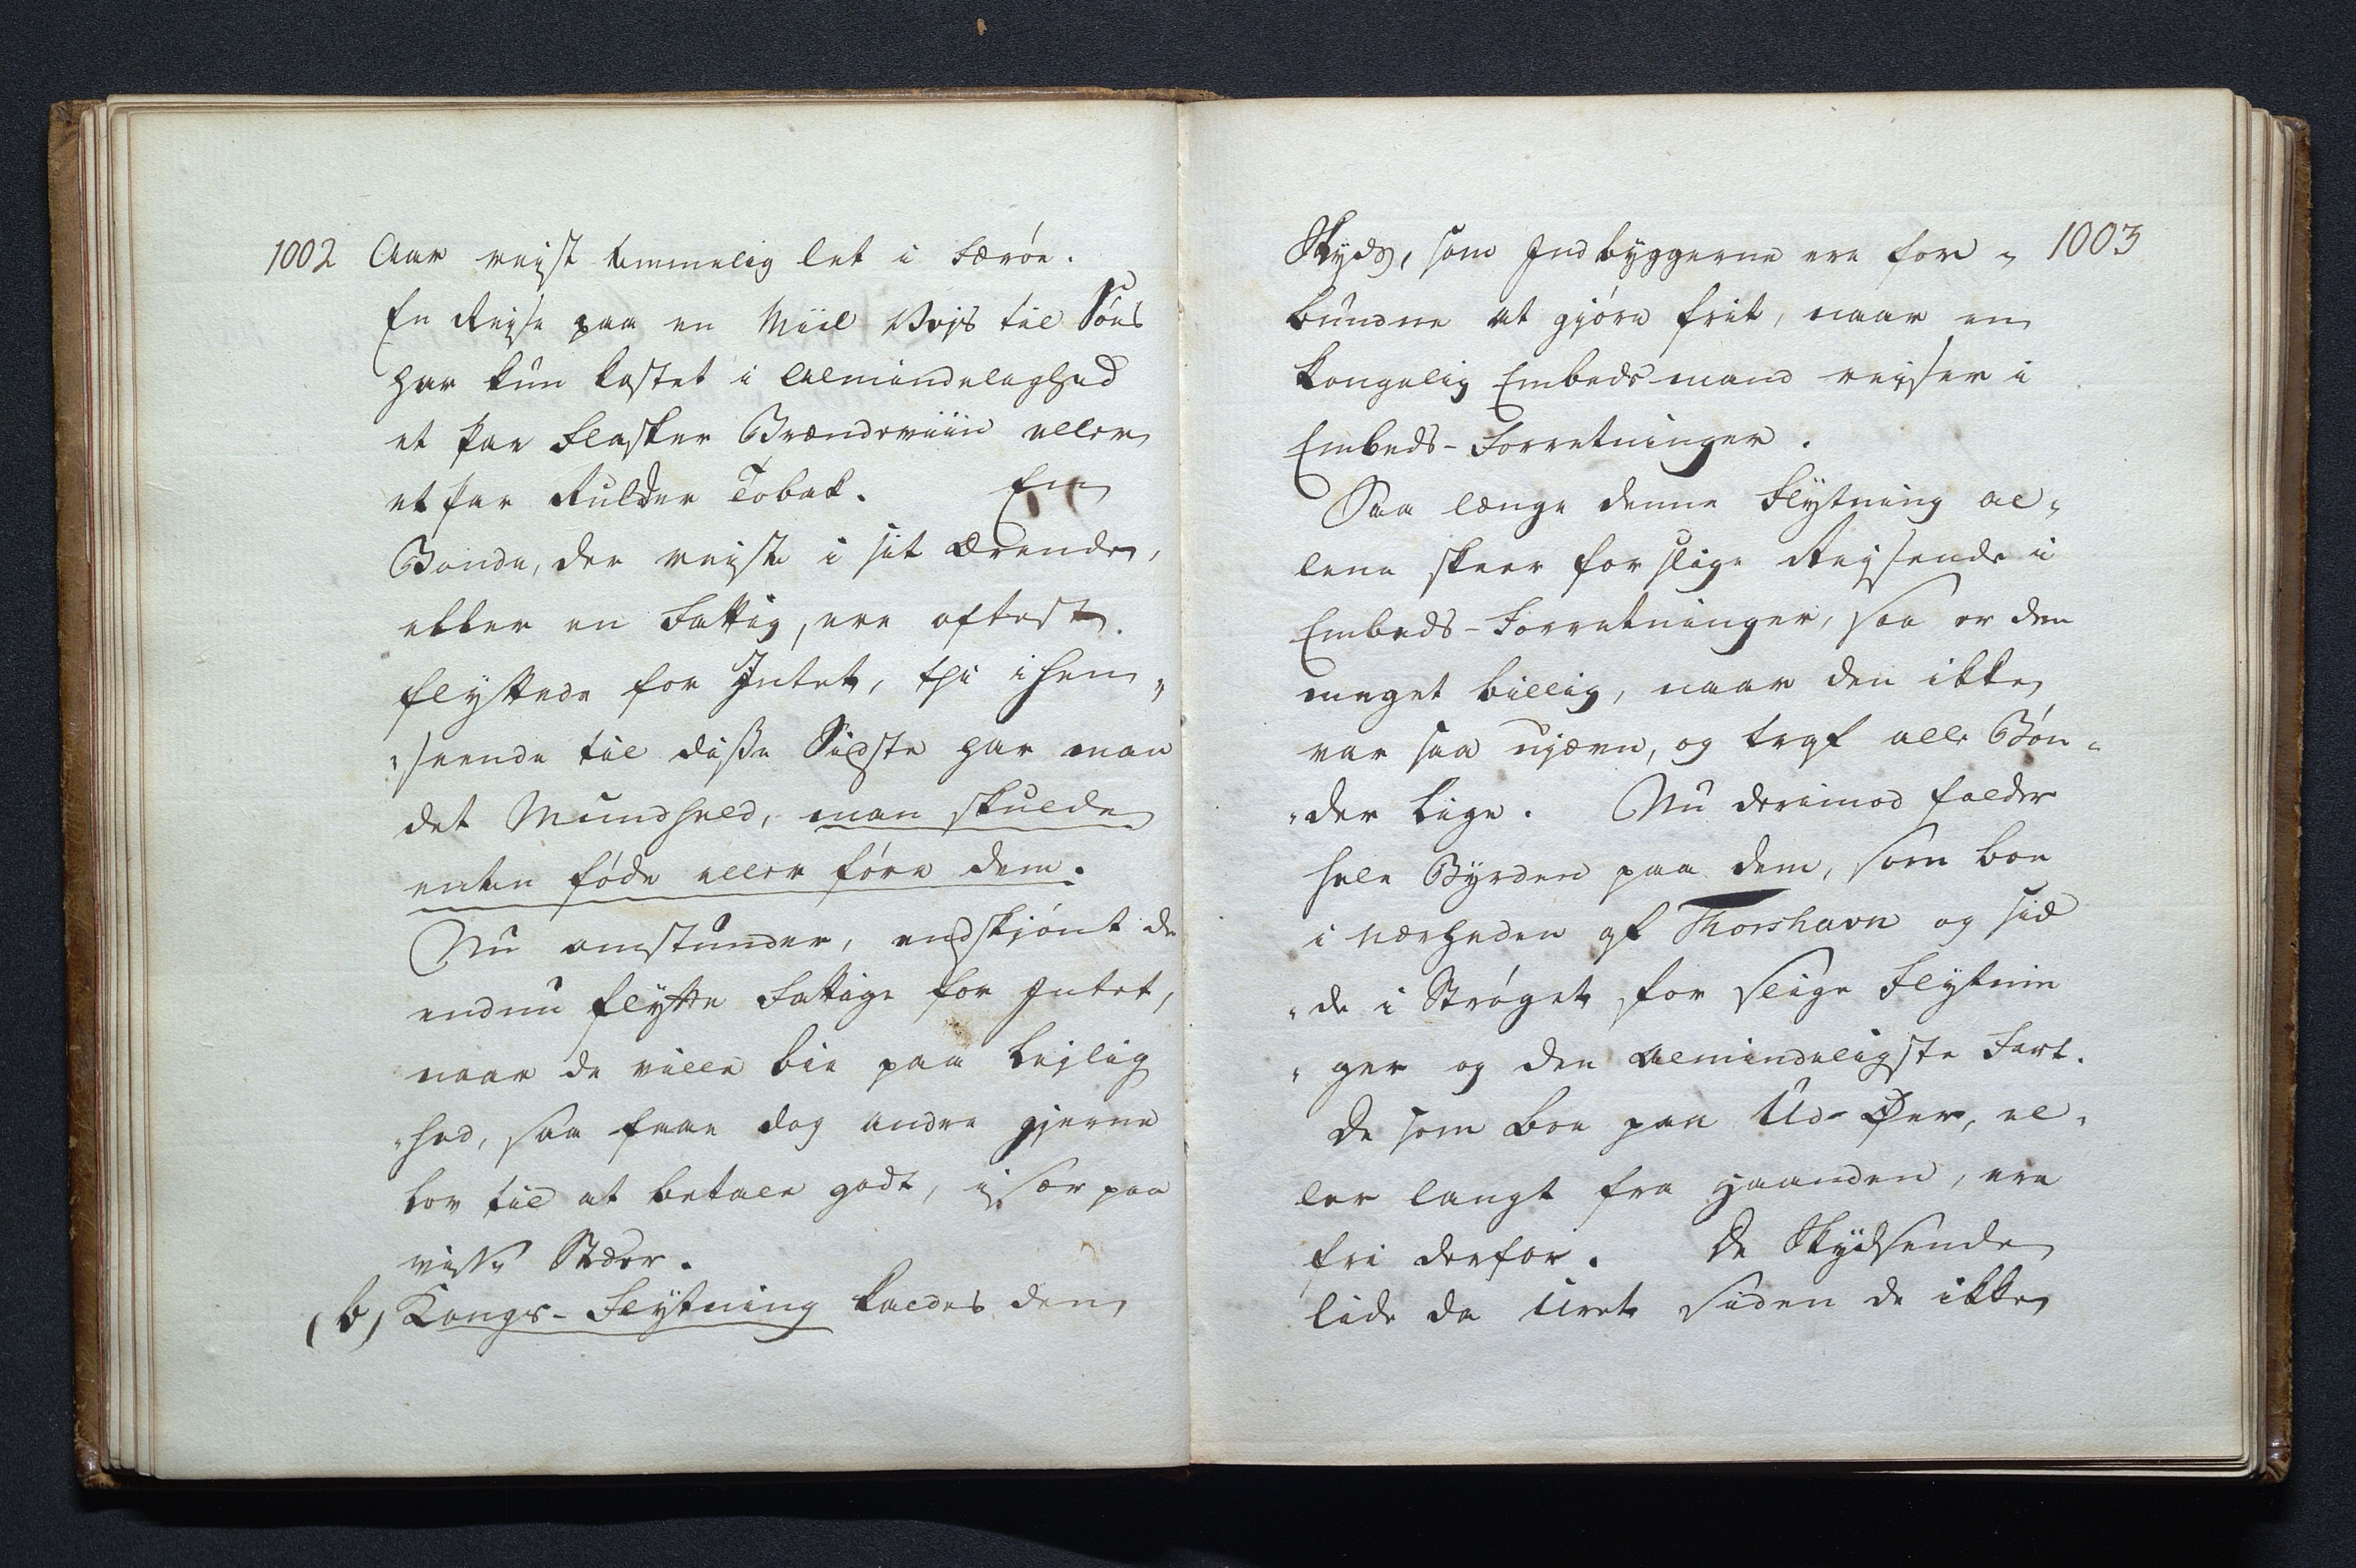 1002 Aar reist temmelig let i Færøe.
En Reise paa en Miil Vejs til Søes
har kun kostet i Almindelighed
et Par Flasker Brændeviin eller
et Par Rulder Tobak. En
Bonde, der reiste i sit Ærende,
eller en Fattig, ere oftest
flyttede for Intet, thi i Hen„
„seende til disse Sidste har man
det Mundheld, man skulde
enten føde eller føre dem.
Nu omstunder, endskjønt de
endnu flytte Fattige for Intet,
naar de ville bie paa Lejlig
„hed, saa faae dog andre gjerne
Lov til at betale godt, især paa
visse Stæder.
(b) Kongs-Flytning kaldes den
Skyds, som Indbyggerne ere for „ 1003
bundne at gjøre frit, naar en
kongelig Embedsmand reiser i
Embeds-Forretninger.
Saa længe denne Flytning al„
lene skeer for slige Reisende i
Embeds-Forretninger, saa er den
meget billig, naar den ikke
var saa ujævn, og traf alle Bøn„
„der lige. Nu derimod falder
hele Byrden paa dem, som boe
i Nærheden af Thorshavn og sid
„de i Strøget for slige Flytnin
„ger og den almindeligste Fart.
De som boe paa Ud-Øer, el„
ler langt fra Haanden, ere
fri derfor. De Skydsende
lide da Uret siden de ikke